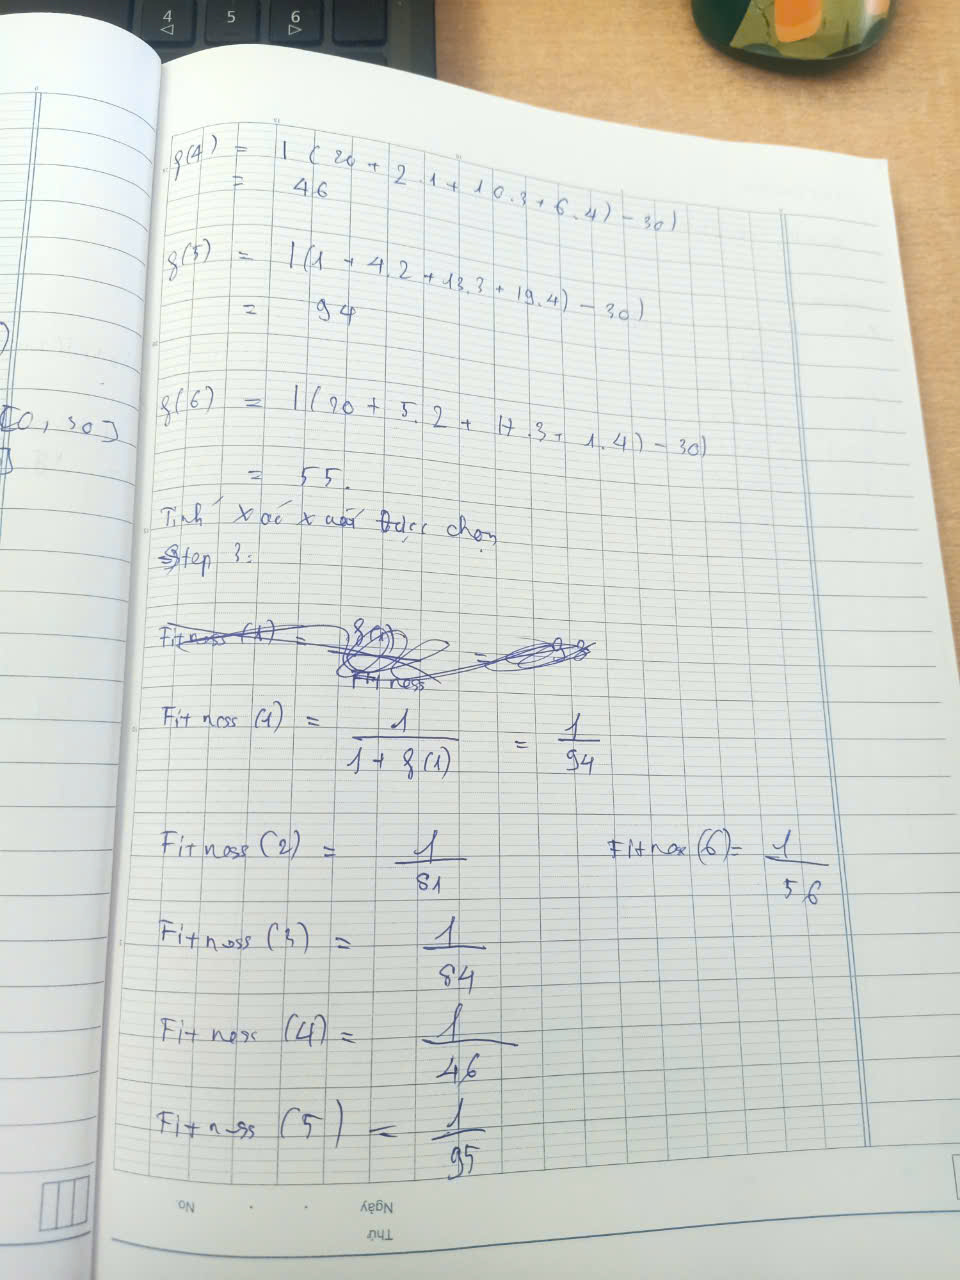 4 5 6
f(4) = | (20 + 2.1 + 10.3 + 6.4) - 30)
= 46
f(5) = |(1 + 4.2 + 13.3 + 19.4) - 30)
= 94
[0, 30]
f(6) = |(20 + 5.2 + 17.3 + 1.4) - 30)
= 55.
Tính xác xuất được chọn
Step 3:
Fitness (1) = 1 / (1 + f(1)) = 1/94
Fitness (2) = 1/81 Fitnes (6) = 1/56
Fitness (3) = 1/84
Fitness (4) = 1/46
Fitness (5) = 1/95
No. Ngày
Thứ